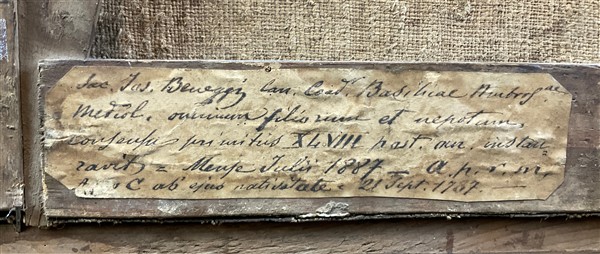 Sac. Jos. Beneggi Can. Coad. Basilicae Ambros.nae
Mediol. omnium filiorum et nepotum,
consensu primitus XLVIII post. an. instau-
ravit = Mense Julii 1887 — A. p. r. m,
C ab ejus nativitate = 21 Sept. 1787 —